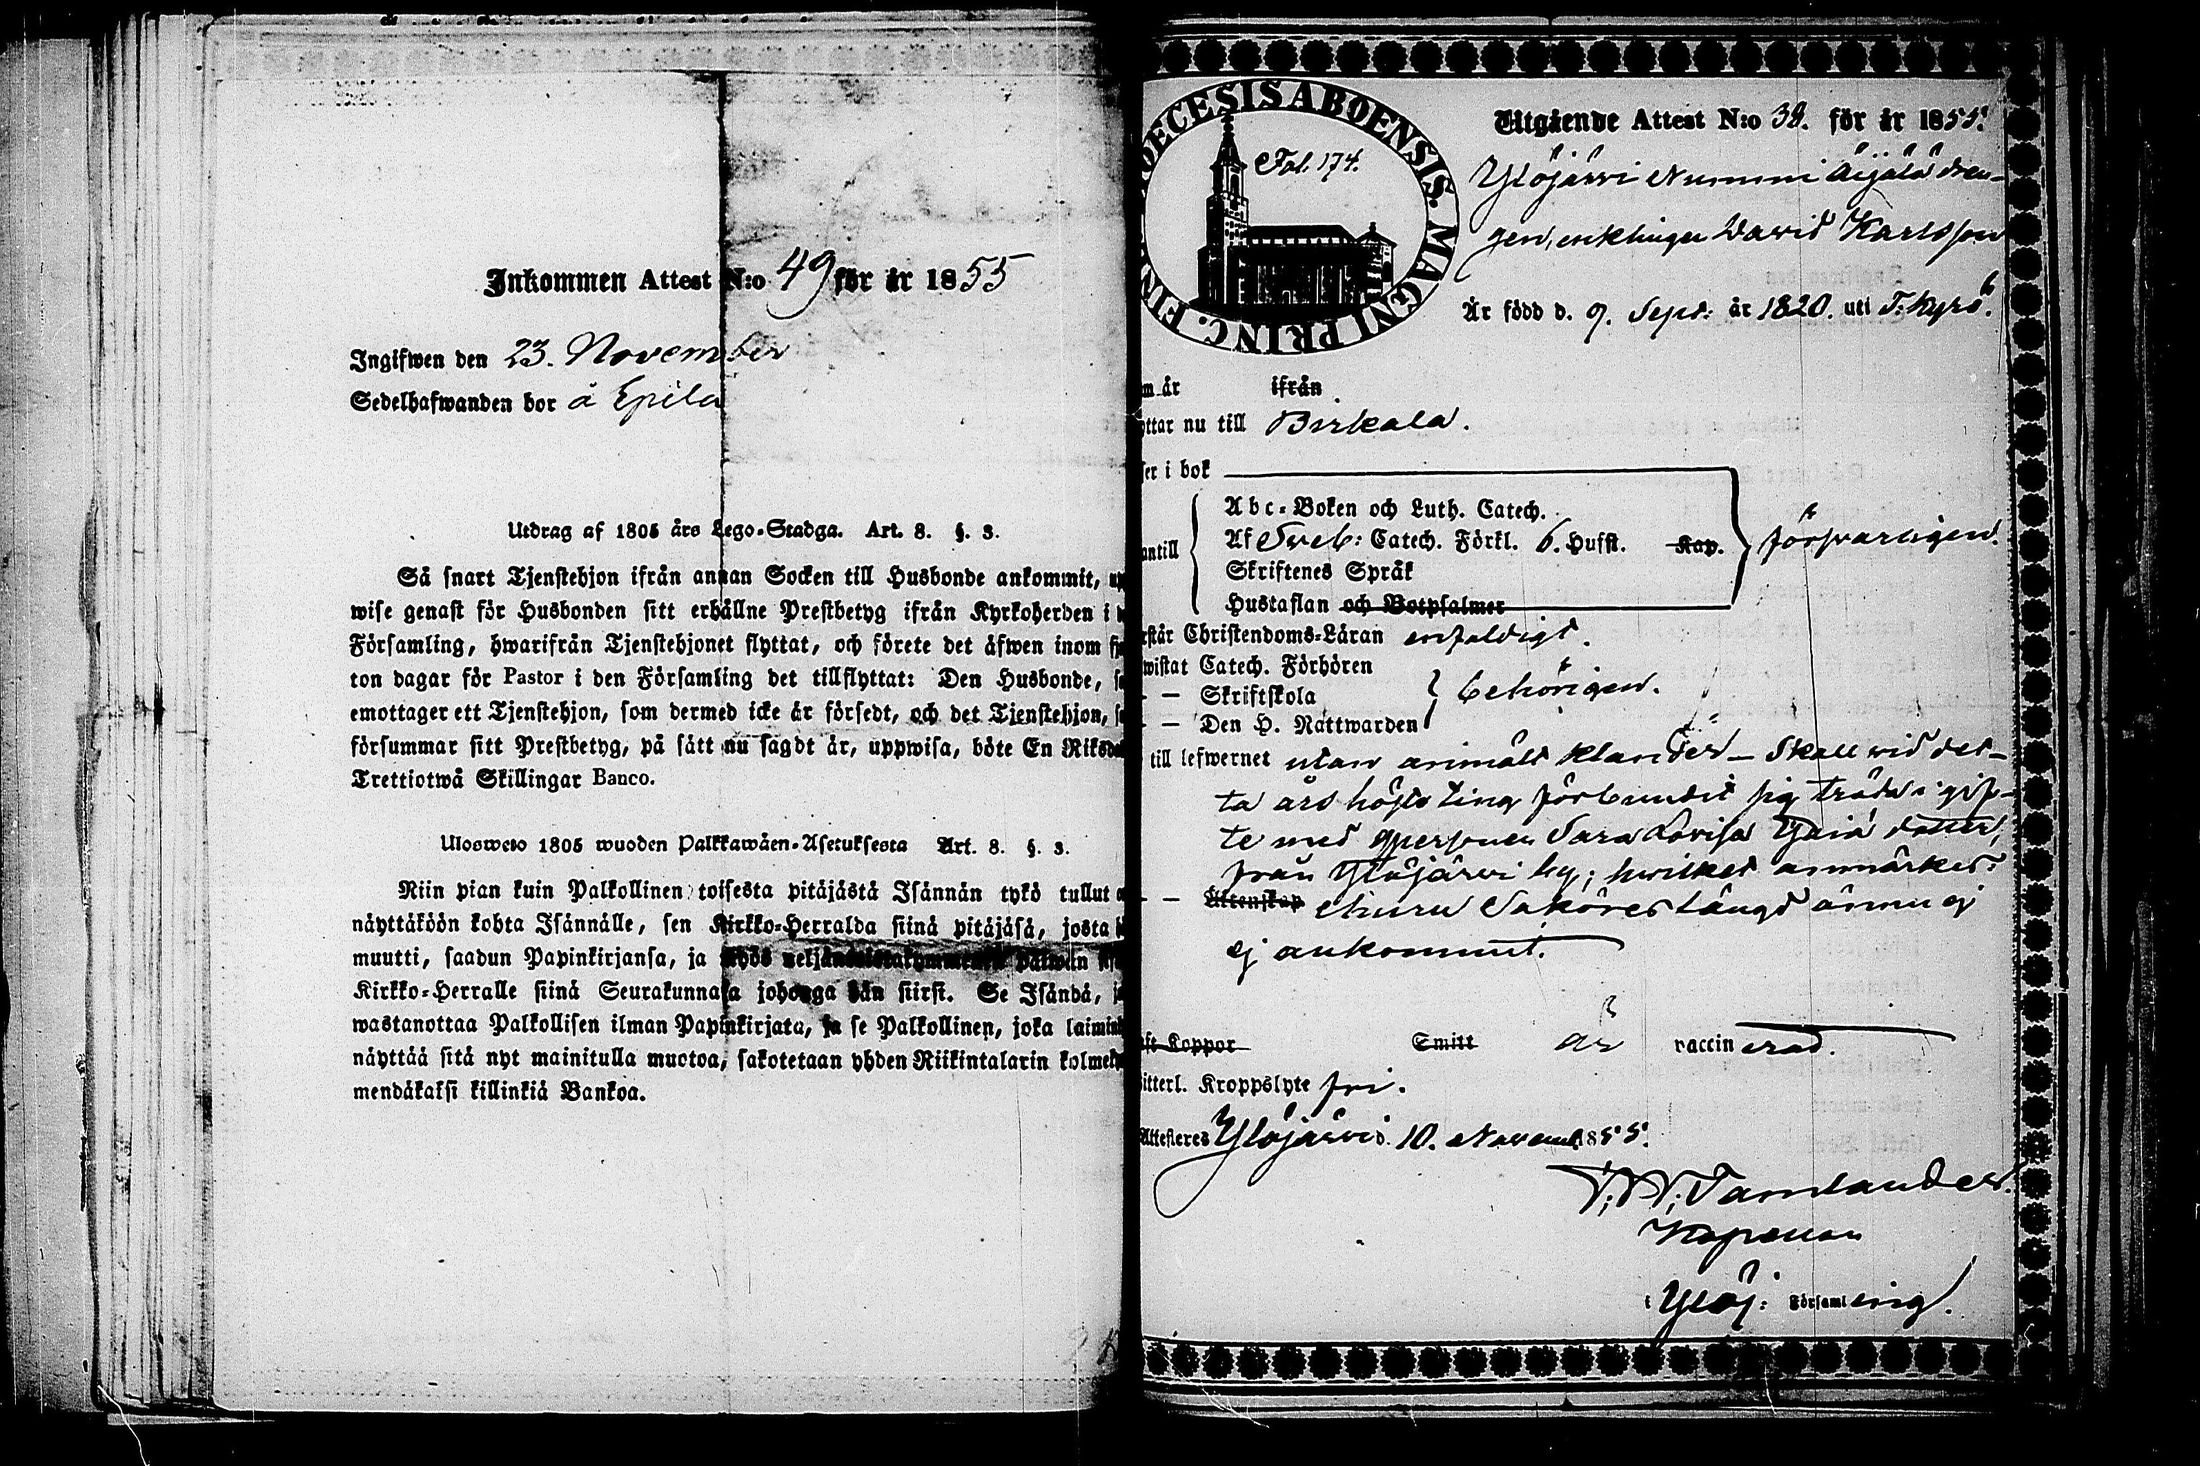 Inkommen Attest N:o 49 för år 1855
Ingifwen den 23. November
Sedelhafwanden bor å Epila
Utdrag af 1805 års Lego-Stadga. Art. 8. §. 3.
Så snart Tjenstehjon ifrån annan Socken till Husbonde ankommit, up
wise genast för Husbonden sitt erhållne Prestbetyg ifrån Kyrkoherden i
Församling, hwarifrån Tjenstehjonet flyttat, och förete det äfwen inom fj
ton dagar för Pastor i den Församling det tillflyttat: Den Husbonde, s
emottager ett Tjenstehjon, som dermed icke är försedt, och det Tjenstehjon, s
försummar sitt Prestbetyg, på sätt nu sagdt är, uppwisa, böte En Riksda
Trettiotwå Skillingar Banco.
Ulosweto 1805 wuoden Palkkawäen-Asetuksesta Art. 8. §. 3.
Niin pian kuin Palkollinen toisesta pitäjästä Isännän tykö tullut o
näyttäköön kohta Isännälle, sen Kirkko-Herralda siinä pitäjäsä, josta h
muutti, saadun Papinkirjansa, ja myös neljäntoistakymmenen päiwän sis
Kirkko-Herralle siinä Seurakunnasa johonga hän siirsi. Se Isändä, j
wastanottaa Palkollisen ilman Papinkirjata, ja se Palkollinen, joka laimin
näyttää sitä nyt mainitulla muotoa, sakotetaan yhden Riikintalarin kolmek
mendäkaksi killinkiä Bankoa.
DECESIS ABOENSIS. MAGNI PRINC. FIN
Fol. 174.
Utgående Attest N:o 38. för år 1855.
Ylöjärvi Nummi Äijälä dren-
gen, enklingen David Karlsson
Är född d. 9. Sept: år 1820. uti T:Kyrö.
m år ifrån
ttar nu till Birkala.
ser i bok
antill
Abc-Boken och Luth. Catech.
Af Sveb: Catech. Förkl. 6. Hufst. Kap.
Skriftenes Språk
Hustaflan och Botpsalmer
försvarligen.
rstår Christendoms-Läran enfaldigt.
wistat Catech. Förhören
— Skriftskola
— Den H. Nattwarden
behörigen.
till lefwernet utan anmält klander – Skall vid det-
ta års höste ting förbundit sig träda i gif-
te med qpersonen Sara Lovisa dotter,
från Ylöjärvi by; hvilket anmärkes.
— Äktenskap Saköreslängd ännu ej
ej ankommit.
ft Koppor Smitt är vaccinerad.
itterl. Kroppslyte fri.
Attesteres Ylöjärvi d. 10. Novemb. 1855.
Tamlander.
Kapellan
i Ylöj: Församling.